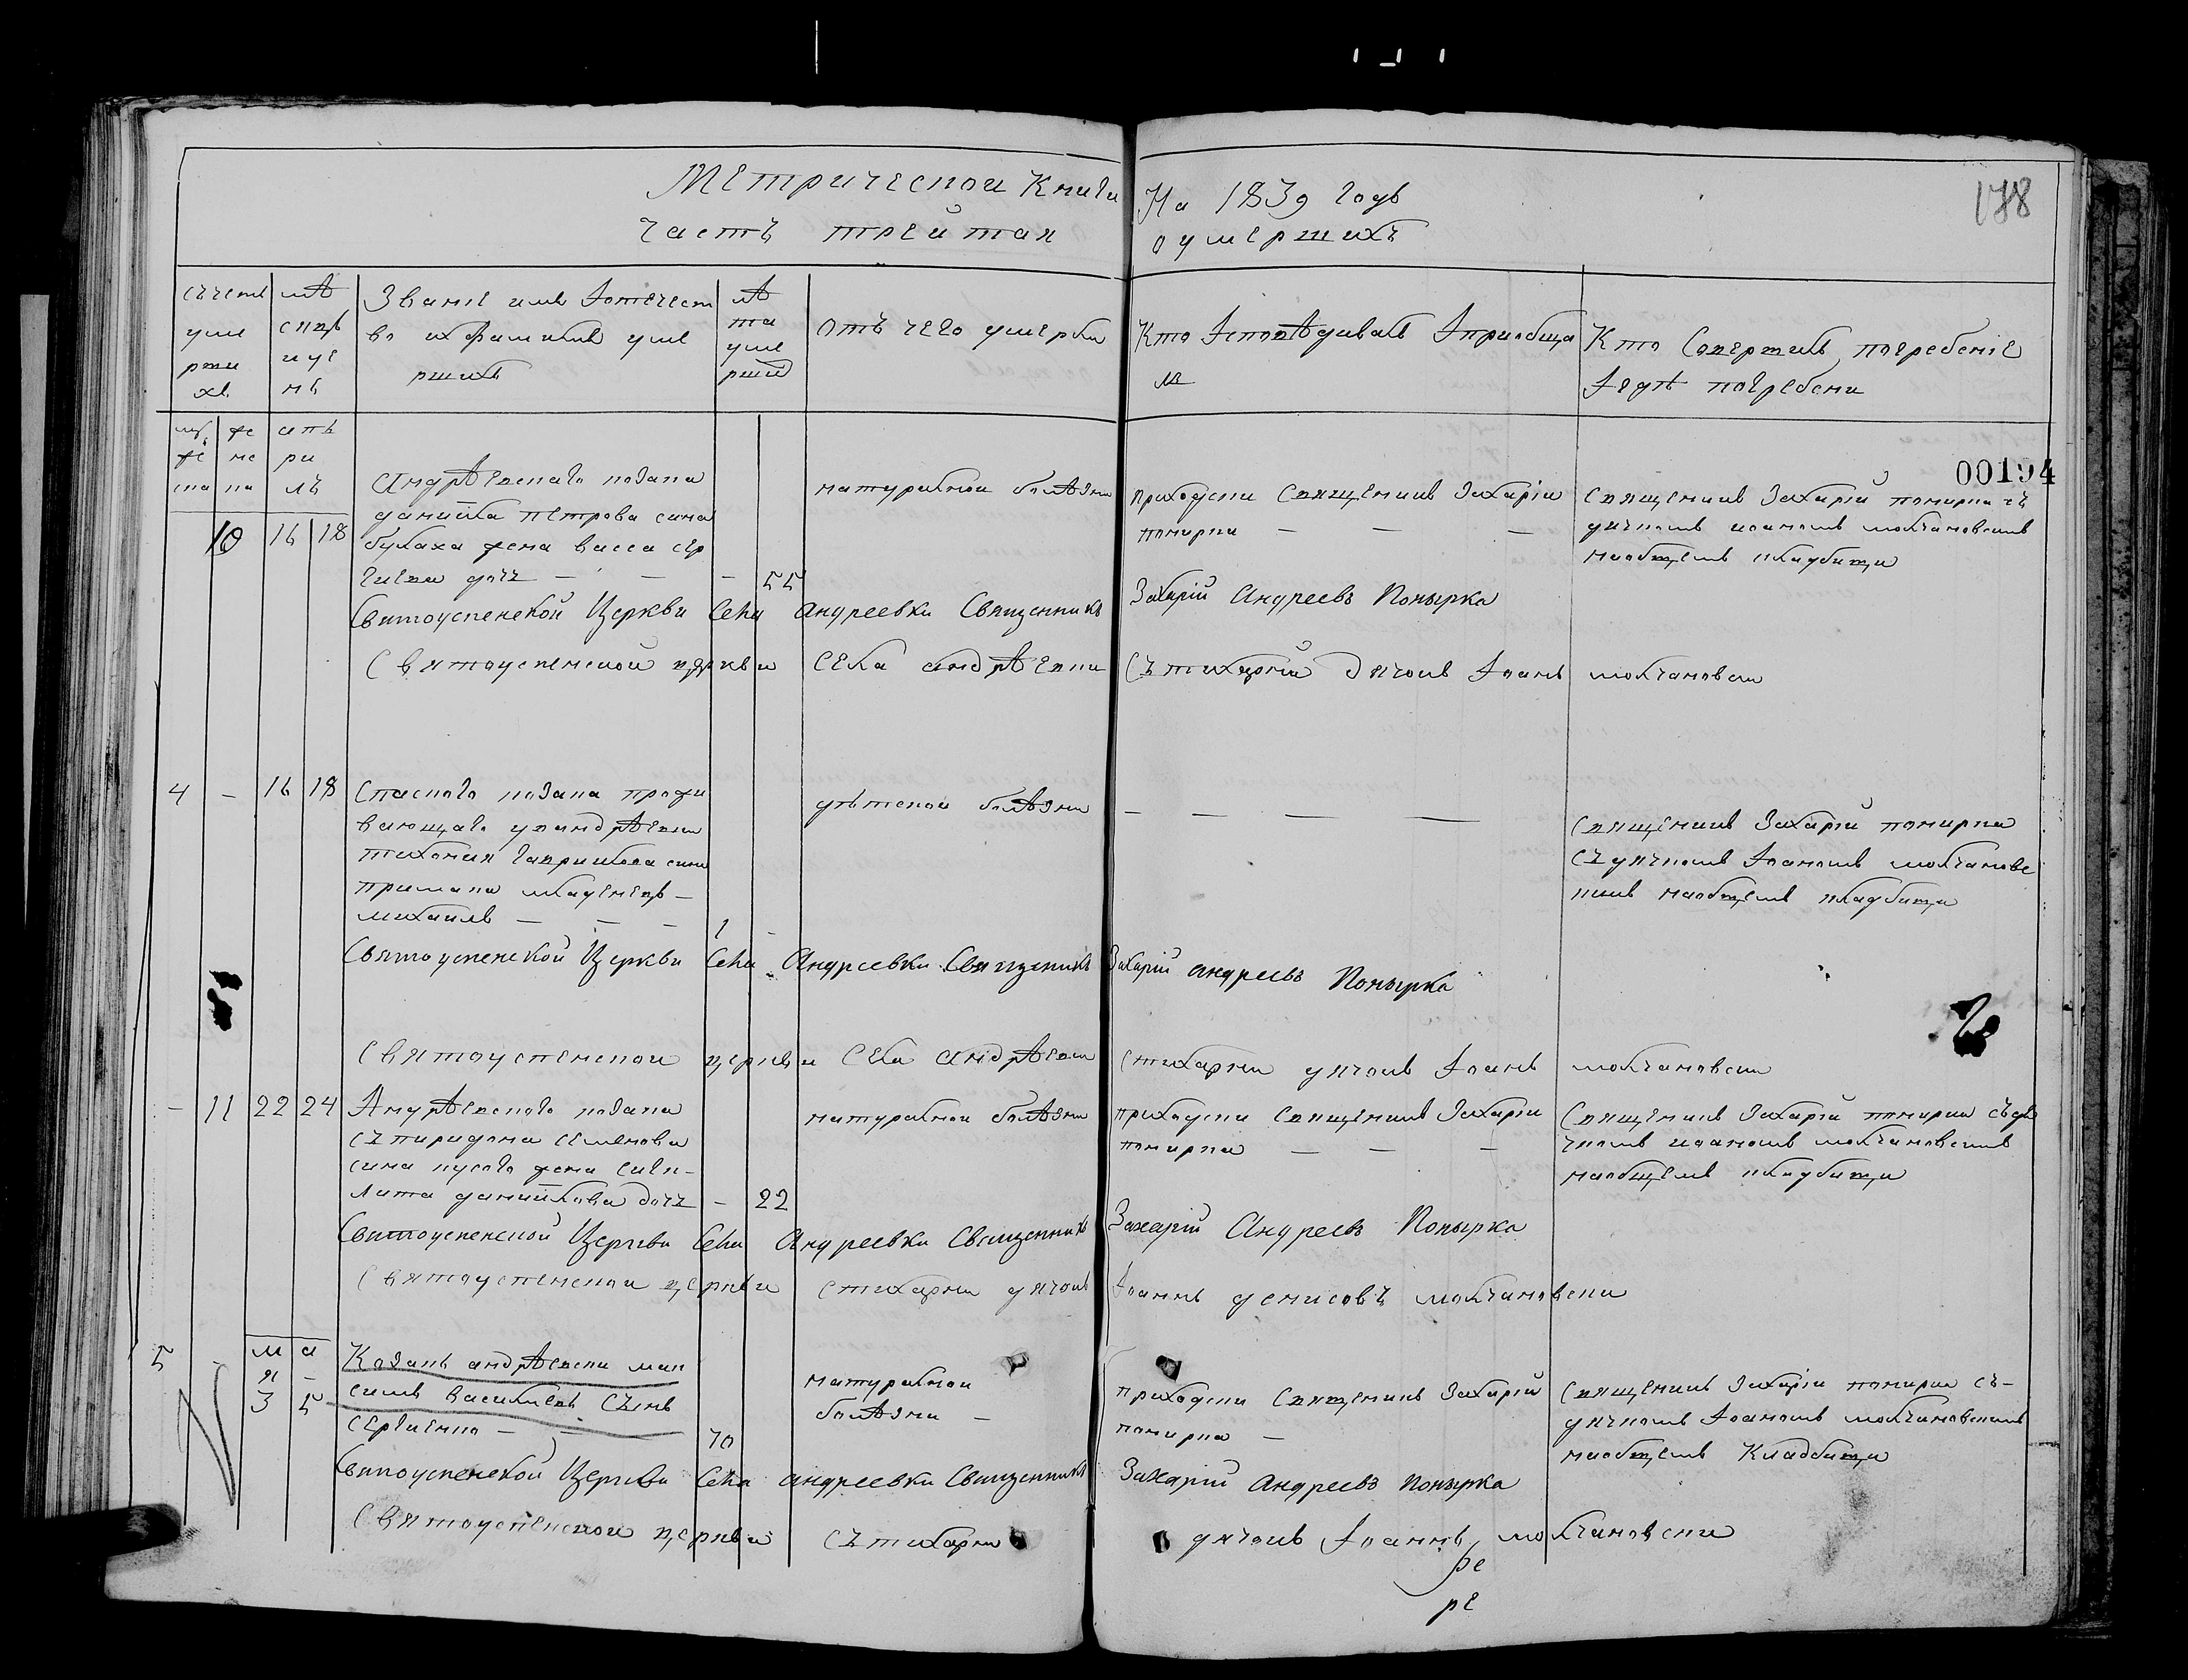 Метрической Книги На 1839 годъ
188
Часть трейтая о умершихъ
счетъ умершихъ
мѣсяцъ и день
Званіе имя ꙇотечест
во и фамилія уме
ршихъ
лѣ
та
уме
рши
отъ чего умерли
Кто ꙇсповѣдивалъ ꙇприобща
лъ
Кто Совершилъ погребеніе
ꙇгдѣ погребени
муже
ска
же
нс
ка
апъ
ри
лъ
00194
10
16
18
андрѣевскаго козака
данийла петрова сина
булаха жена васса сер
гиева дочъ — — —
55
натуралной болѣзни
приходски Священикъ Захарій
понирка — — —
Священикъ Захарій понирка съ
дячкомъ иоаномъ молчановскимъ
наобщемъ кладбищи
Святоуспенской Церкви Села Андреевки Священникъ Захарій Андреевъ Понырка
Святоуспенской церкви Села андрѣевки Стихарній Дячокъ ꙇоанъ молчановски
4
—
16
18
Спаского козака прожи
вающаго уваndрѣевки
тихония гаврилова сина
примака младенецъ —
михаилъ — — —
1 -
дѣтской болѣзни
— — — —
Священикъ Захарій понирка
Съдячкомъ ꙇоаномъ молчановс
кимъ наобщемъ кладбищи
Святоуспенской Церкви Села Андреевки Священикъ Захарій андреевъ Понырка
Святоуспенской церкви Села андрѣевки стихарни дячокъ ꙇоанъ молчановски
—
11
22
24
Андрѣевского козака
Съпиридона семенова
сина кусого жена Сикли-
лита данийлова дочъ —
22
натуралной болѣзни
приходски Священикъ Захарій
понирка — — —
Священикъ Захарій понирка Съдя
чкомъ иоаномъ молчановскимъ
наобщемъ кладбищи
Святоуспенской Церкви Села Андреевки Священникъ Захарій Андреевъ Понырка
Святоуспенской церкви стихарни дячокъ ꙇоаннъ денисовъ молчановски
5
-
мая
3
5
Козакъ андрѣевски мак
симъ василиевъ Сынъ
Сергиенко — —
70
натуралной
болѣзни —
приходски Священикъ Захарій
понирка —
Священикъ Захарій понирка съ-
дячкомъ ꙇоаномъ молчановскимъ
наобщемъ Кладбищи
Святоуспенской Церкви Села андреевки Священникъ Захарій Андреевъ Понырка
Святоуспенской церкви Стихарни дячокъ ꙇоаннъ молчановски
ре
ре